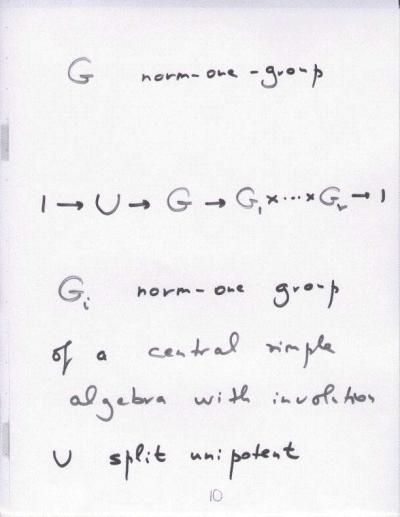 G norm-one-group
1 → U → G → G₁ × ⋯ × Gᵣ → 1
Gᵢ norm-one group
of a central simple
algebra with involution
U split unipotent
10